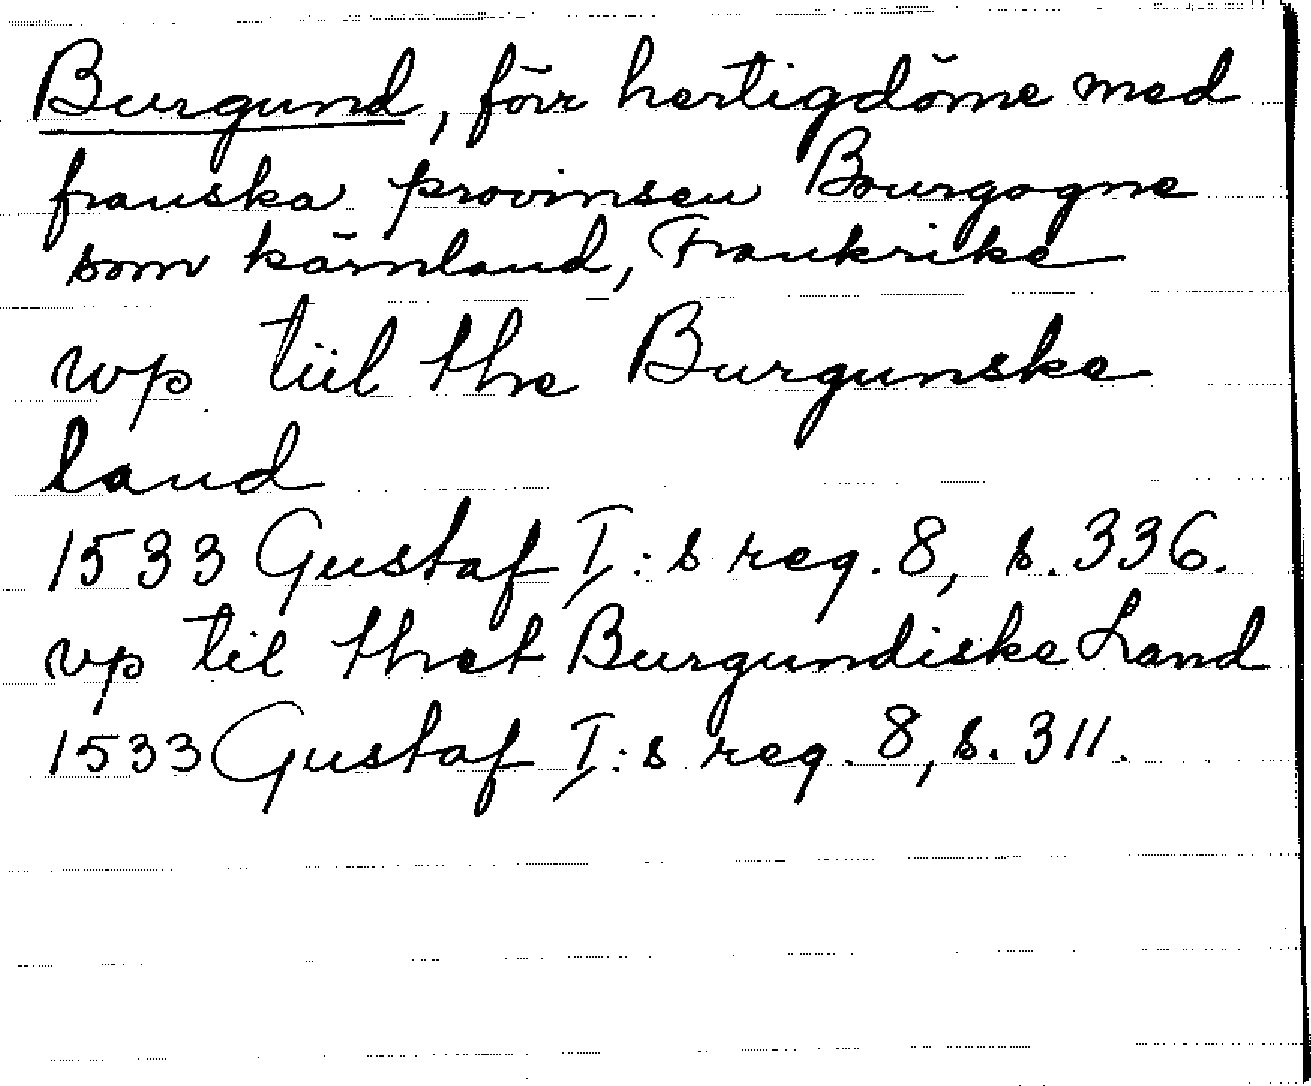 Burgund, förr hertigdöme med
franska provinsen Bourgogne
som kärnland, Frankrike
wp tiil the Burgunske
land
1533 Gustaf I:s reg. 8, s. 336.
vp til thet Burgundiske Land
1533 Gustaf I:s reg. 8, s. 311.